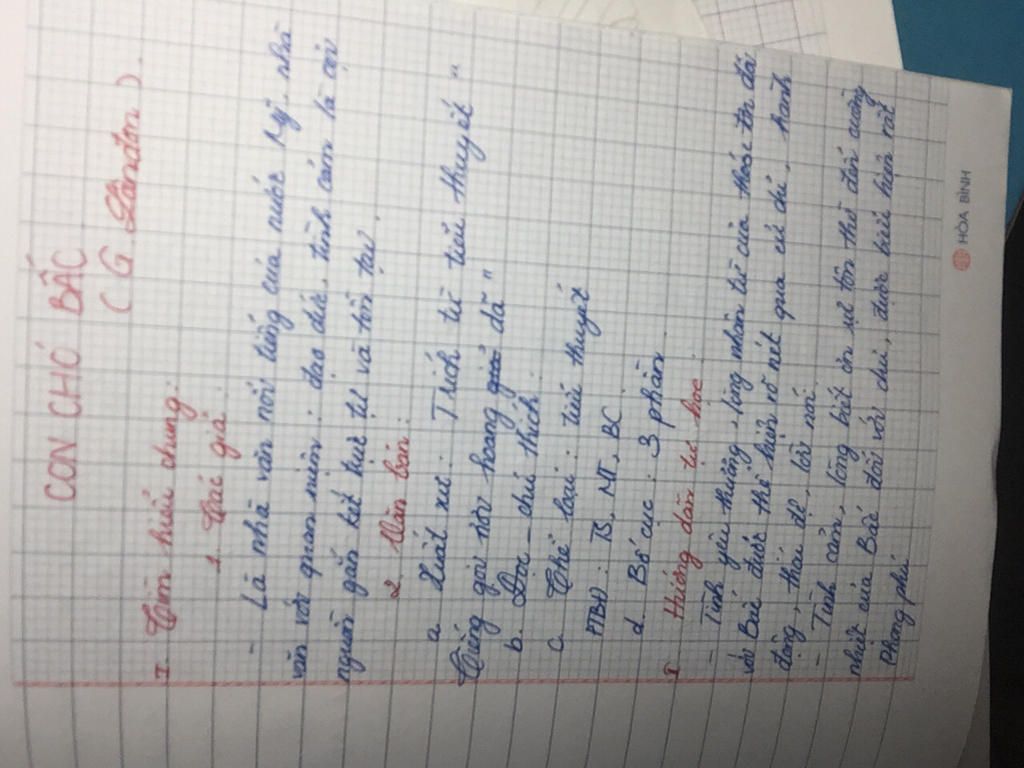 CON CHÓ BẤC
( G. Lânđơn ).
I. Tìm hiểu chung.
1. Tác giả.
- Là nhà văn nổi tiếng của nước Mỹ, nhà
văn với quan niệm: đạo đức, tình cảm là cội
nguồn gắn kết loại và tồn tại.
2. Văn bản:
a. Xuất xứ: Trích từ tiểu thuyết "
Tiếng gọi nơi hoang dã"
b. Đọc - chú thích.
c. Thể loại: tiểu thuyết
PTBĐ: TS, MT, BC
d. Bố cục: 3 phần.
I Hướng dẫn tự học.
- Tình yêu thương, lòng nhân từ của thoóc tơn đối
với Bấc được thể hiện rõ nét qua cử chỉ, hành
động, thái độ, lời nói.
- Tình cảm, lòng biết ơn sự tôn thờ đến cuồng
nhiệt của Bấc đối với chủ, được biểu hiện rất
Phong phú
HÒA BÌNH